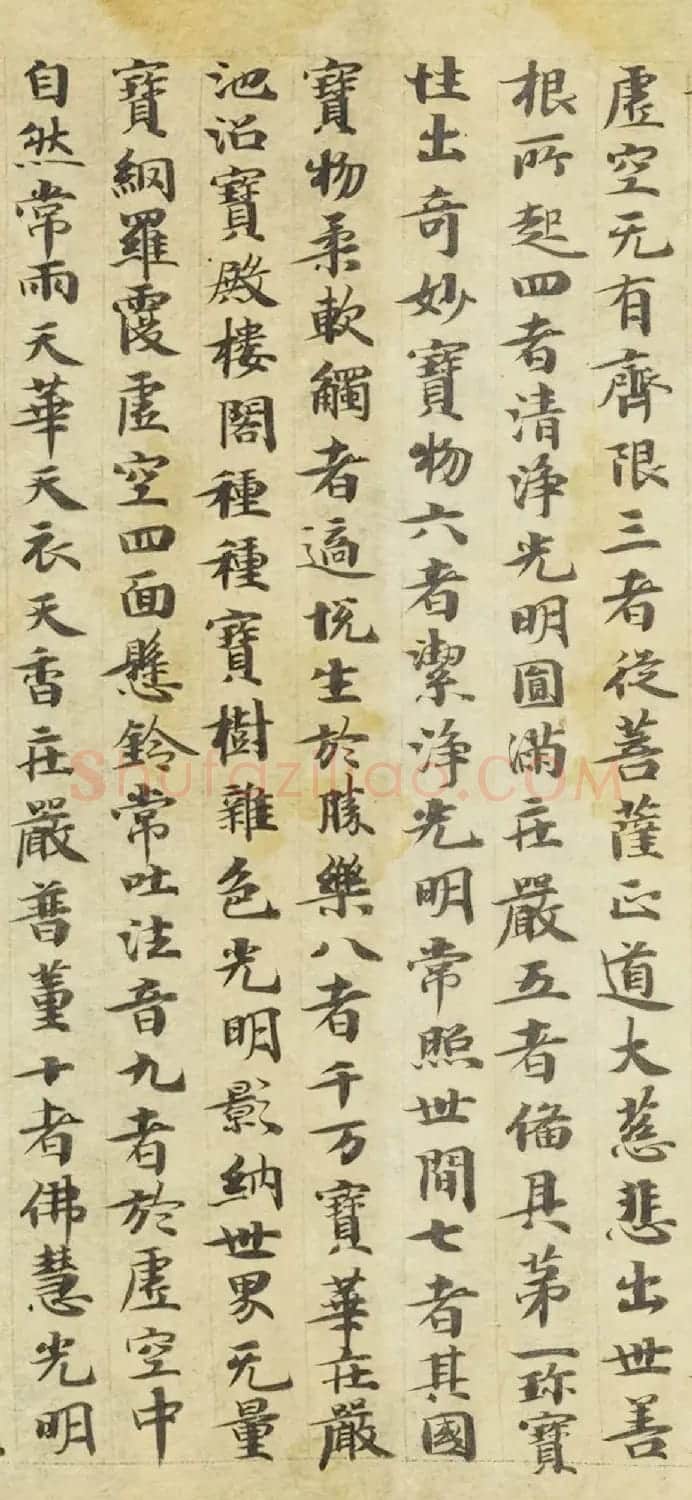 虛空无有齊限三者從菩薩正道大慈悲出世善
根所起四者清淨光明圓滿莊嚴五者俻具苐一珎寶
性出奇妙寶物六者潔淨光明常照世間七者其國
寶物柔軟觸者適悅生於勝樂八者千万寶華莊嚴
池沼寶殿樓閣種種寶樹雜色光明影納世界无量
寶網羅覆虛空四面懸鈴常吐法音九者於虛空中
自然常雨天華天衣天香莊嚴普董十者佛慧光明
Shufaziliao.COM